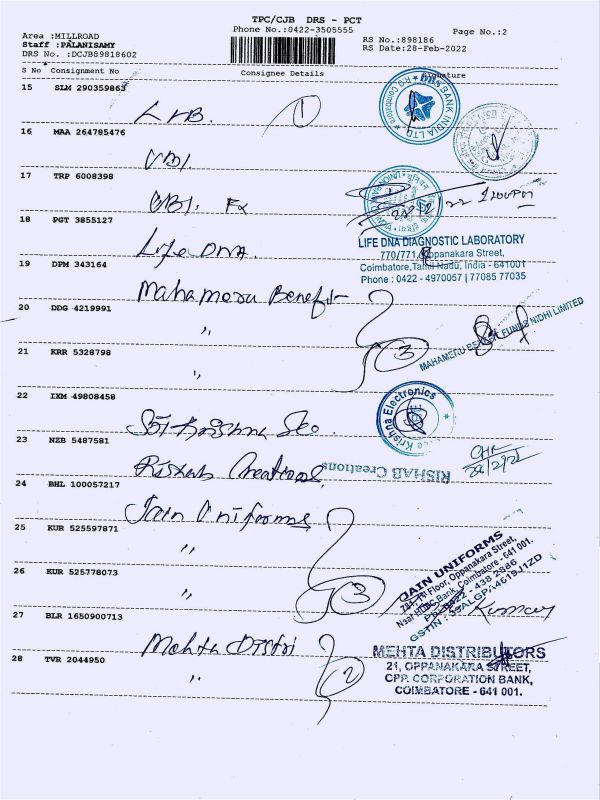 TPC/CJB DRS - PCT
Phone No.:0422-3505555
Page No.:2
Area :MILLROAD
Staff :PALANISAMY
DRS No. :DCJB89818602
RS No.:898186
RS Date:28-Feb-2022
S No Consignment No Consignee Details Signature
15 SLM 290359863
LVB. 1
DBS BANK INDIA LTD
16 MAA 264785476
UBI
17 TRP 6008398
UBI. Fx
18 PGT 3855127
Life DNA.
LIFE DNA DIAGNOSTIC LABORATORY
770/771, Oppanakara Street,
Coimbatore,Tamil Nadu, India - 641001
Phone : 0422 - 4970057 | 77085 77035
19 DPM 343164
Mahameru Benefit
20 DDG 4219991
"
MAHAMERU BENEFIT FUNDS NIDHI LIMITED
21 KRR 5328798
" 3
22 IXM 49808458
Sri Krishna Ele
Krishna Electronics
23 NZB 5487581
Rishab Creations
RISHAB Creations
24 BHL 100057217
Jain Uniforms
25 KUR 525597871
"
JAIN UNIFORMS
Floor, Oppanakara Street,
Near HDFC Bank, Coimbatore - 641 001.
Ph: 0422 - 438 2886
GSTIN : 33ALGPA4619J1ZD
26 KUR 525778073
" 3
Kumar
27 BLR 1650900713
Mehta Distri
28 TVR 2044950
" 2
MEHTA DISTRIBUTORS
21, OPPANAKARA STREET,
OPP. CORPORATION BANK,
COIMBATORE - 641 001.